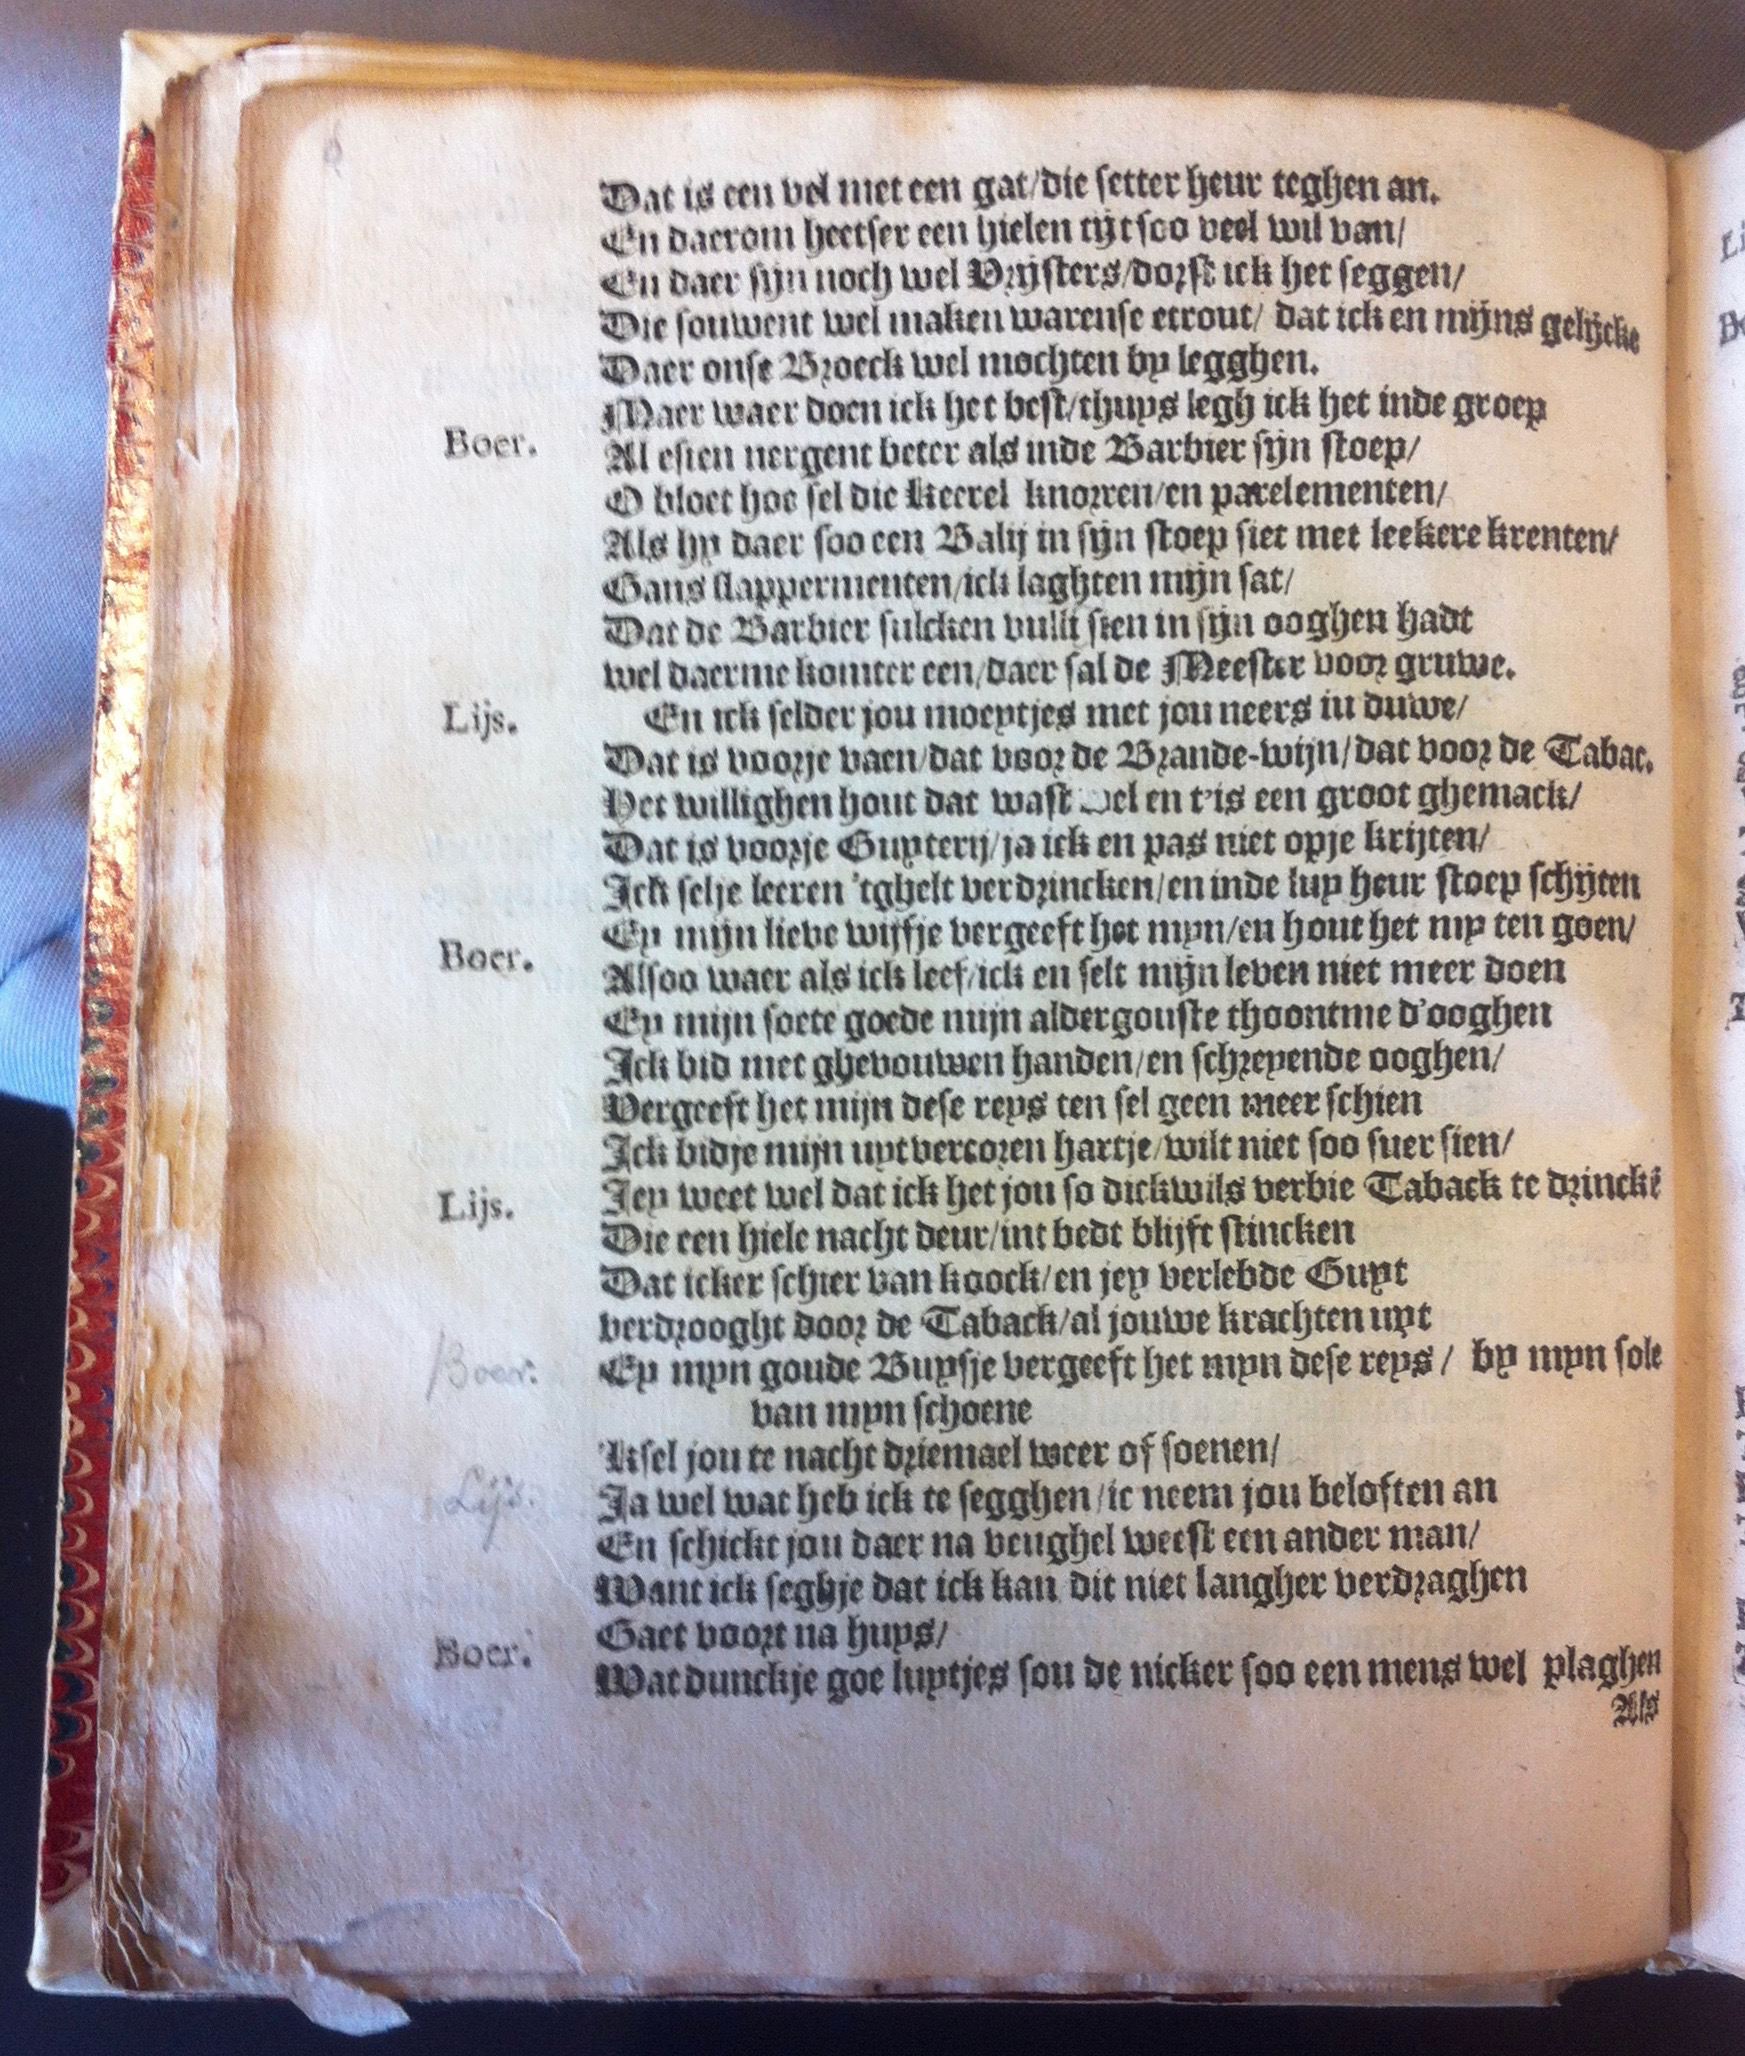 Dat is een vel met een gat/die setter heur teghen an.
En daerom heetser een hielen tijt soo veel wil van/
En daer sijn noch wel Vrijsters/dorst ick het seggen/
Die souwent wel maken warense etrout/ dat ick en mijns gelijcke
Daer onse Broeck wel mochten by legghen.
Maer waer doen ick het best/thuys legh ick het inde groep
Boer. Al esien nergent beter als inde Barbier sijn stoep/
O bloet hoe sel die Keerel knorren/en parelementen/
Als hy daer soo een Balij in sijn stoep siet met leekere krenten/
Gans slappermenten/ick laghten mijn sat/
Dat de Barbier sulcken vulli sten in sijn ooghen hadt
wel daerme komter een/daer sal de Meester voor gruwe.
Lijs. En ick selder jou moeytjes met jou neers in duwe/
Dat is voorje vaen/dat voor de Brande-wijn/dat voor de Tabac.
Het willighen hout dat wast wel en t'is een groot ghemack/
Dat is voorje Guyterij/ja ick en pas niet opje krijten/
Ick selje leeren 'tghelt verdrincken/en inde luy heur stoep schijten
Boer. Ey mijn lieve wijfje vergeeft het myn/en hout het my ten goen/
Alsoo waer als ick leef/ick en selt mijn leven niet meer doen
Ey mijn soete goede mijn aldergouste thoontme d'ooghen
Ick bid met ghevouwen handen/en schreyende ooghen/
Vergeeft het mijn dese reys ten sel geen meer schien
Ick bidje mijn uytvercoren hartje/wilt niet soo suer sien/
Lijs. Jey weet wel dat ick het jou so dickwils verbie Taback te drinckē
Die een hiele nacht deur/int bedt blijft stincken
Dat icker schier van koock/en jey verlebde Guyt
verdrooght door de Taback/al jouwe krachten uyt
Boer. Ey myn goude Buysje vergeeft het myn dese reys / by myn sole
van myn schoene
'Ksel jou te nacht driemael weer of soenen/
Lijs. Ja wel wat heb ick te segghen/ic neem jou beloften an
En schickt jou daer na veughel weest een ander man/
Want ick seghje dat ick kan dit niet langher verdraghen
Gaet voort na huys/
Boer. Wat dunckje goe luytjes sou de nicker soo een mens wel plaghen
Als